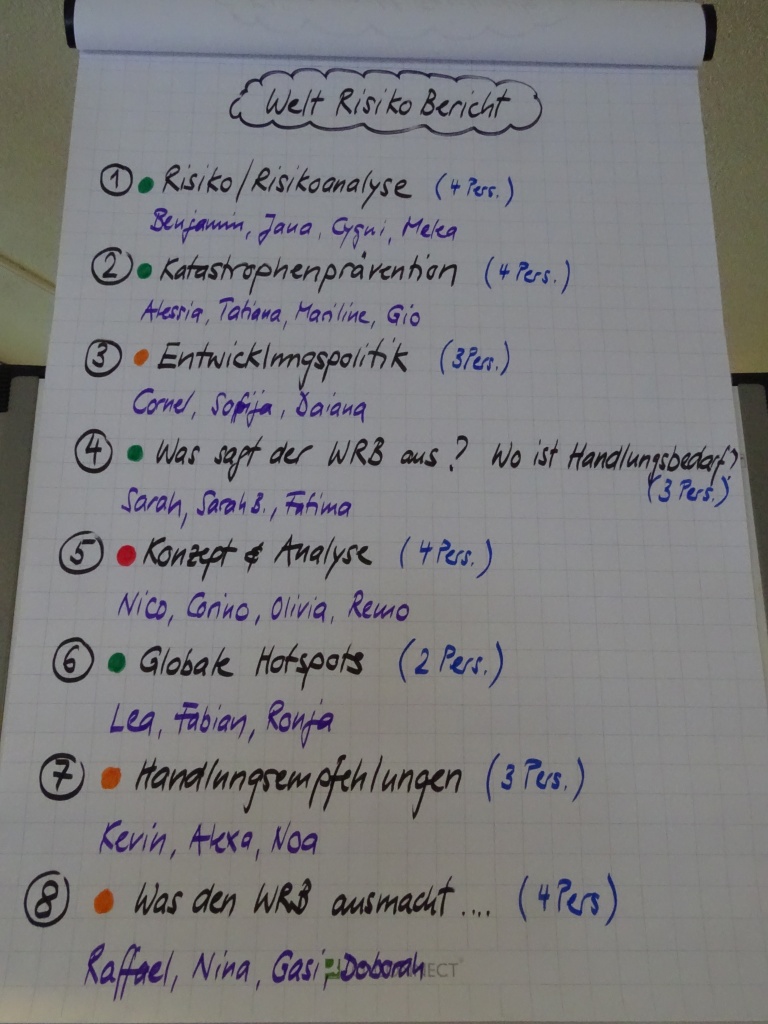 Welt Risiko Bericht
1 Risiko/Risikoanalyse (4 Pers.)
Benjamin, Jana, Cygni, Melea
2 Katastrophenprävention (4 Pers.)
Alessia, Tatiana, Mariline, Gio
3 Entwicklungspolitik (3Pers.)
Cornel, Sofija, Daiana
4 Was sagt der WRB aus? Wo ist Handlungsbedarf?
(3 Pers.)
Sarah, Sarah B., Fatima
5 Konzept & Analyse (4 Pers.)
Nico, Corino, Olivia, Remo
6 Globale Hotspots (2 Pers.)
Lea, Fabian, Ronja
7 Handlungsempfehlungen (3 Pers.)
Kevin, Alexa, Noa
8 Was den WRB ausmacht.... (4 Pers)
Raffael, Nina, Gasi, Deborah